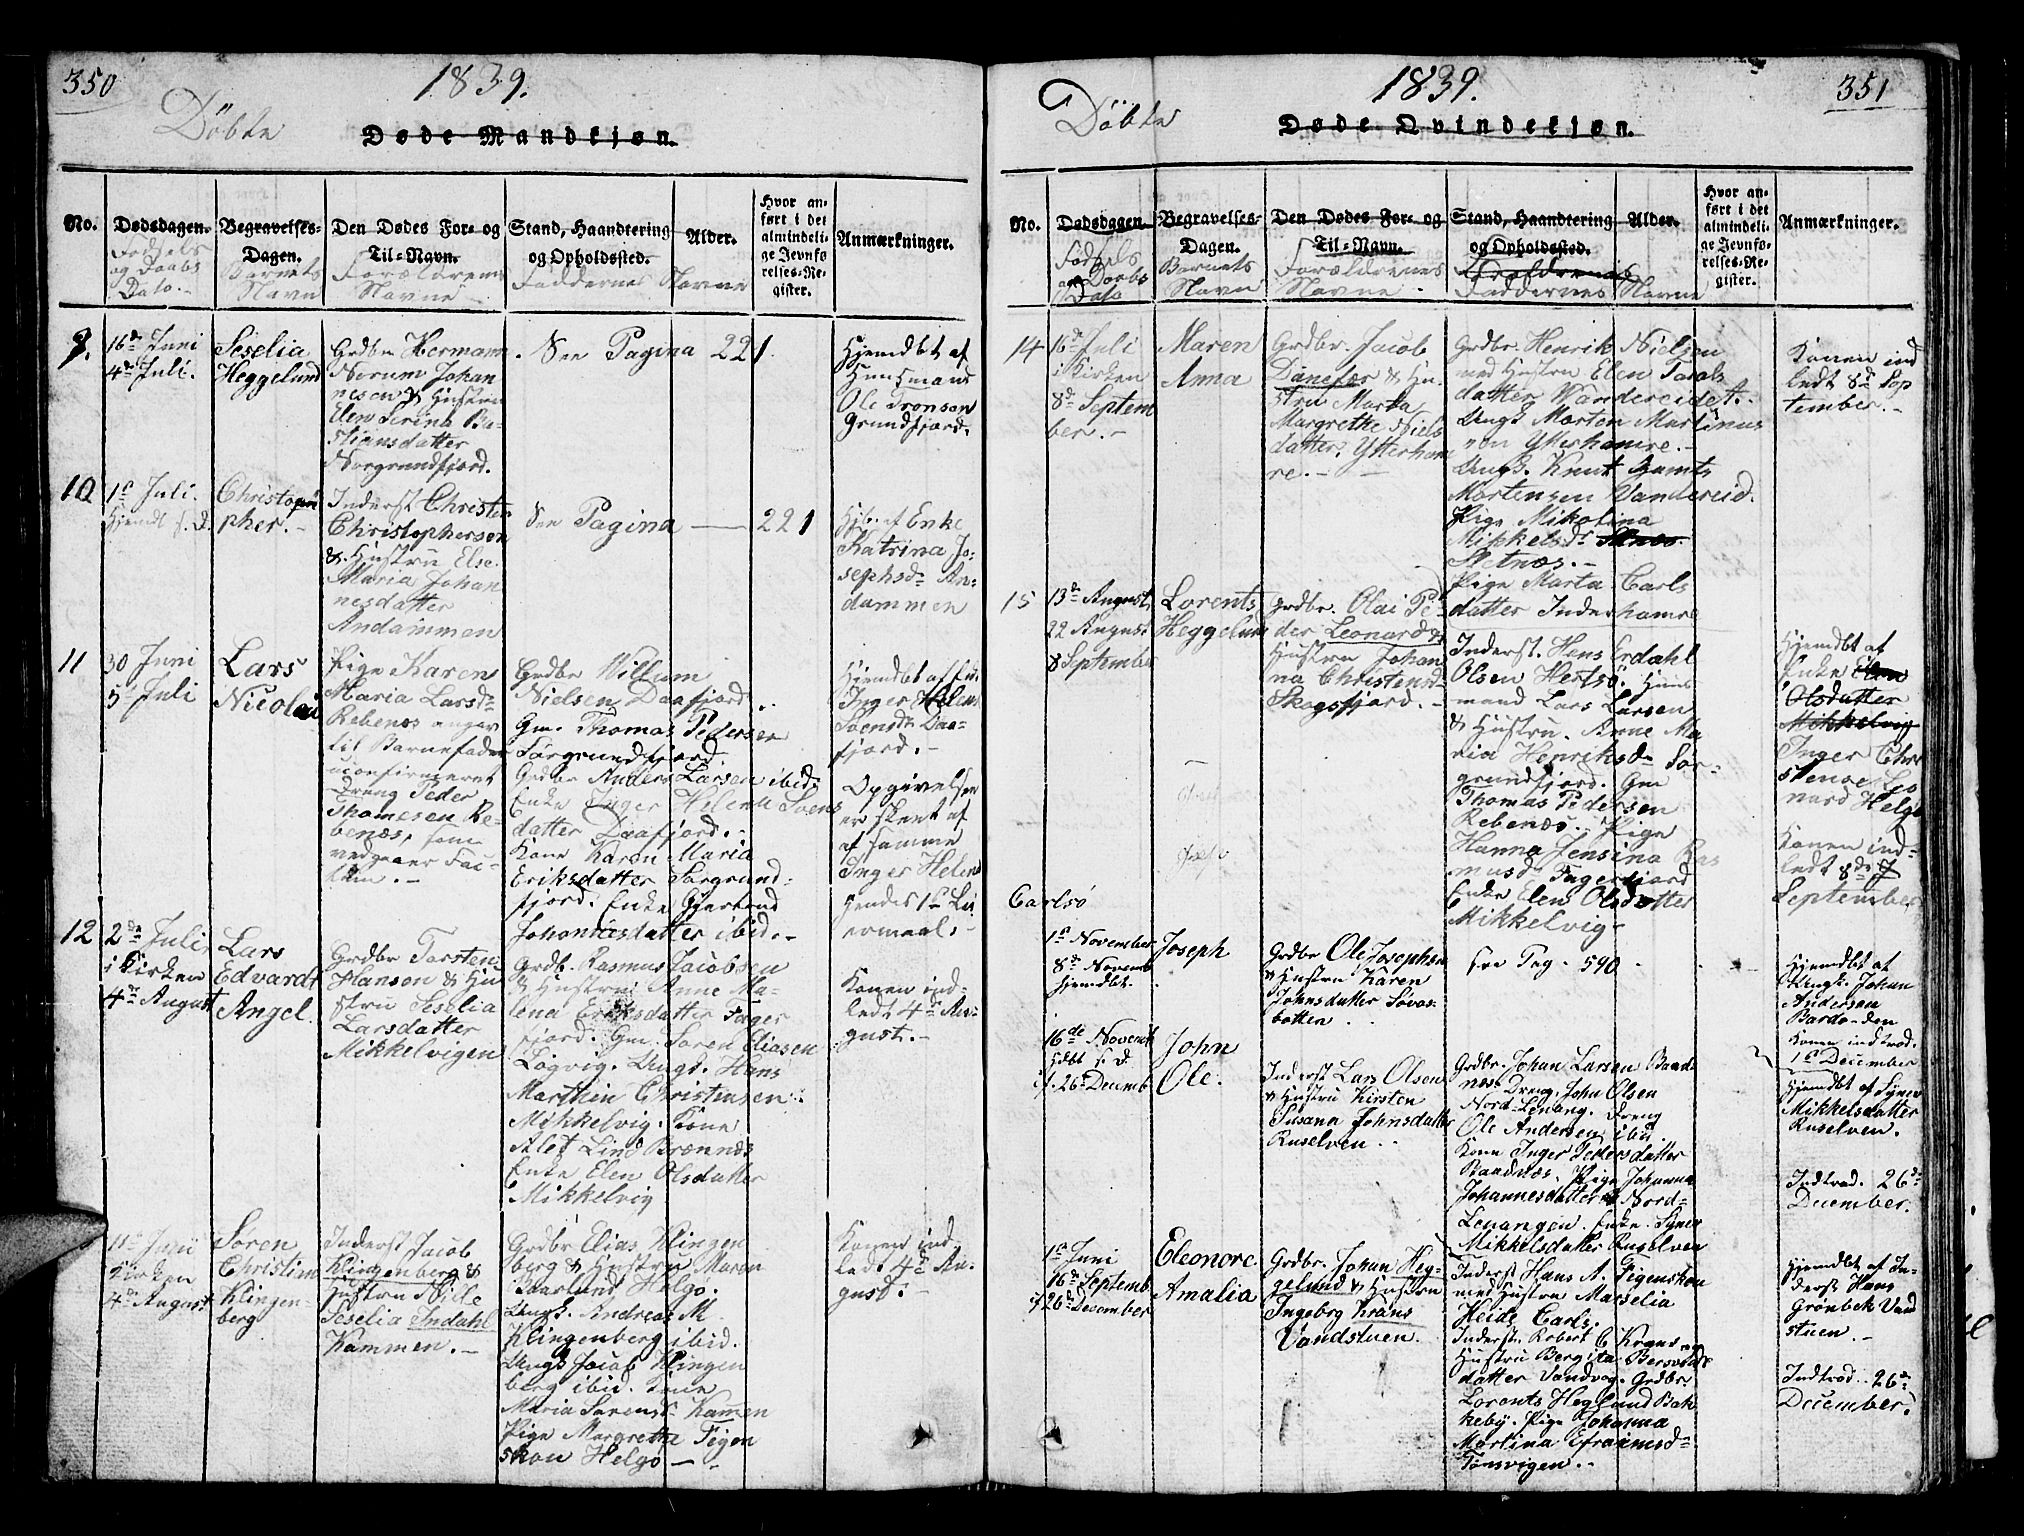 350
1839.
Döbte
Døde Mandkjøn.
No.
Dødsdagen.
Fødsels
og Daabs
Dato.
Begravelses-
Dagen.
Barnets
Navn
Den Dødes For- og
Til-Navn.
Forældrenes
Navne
Stand, Haandtering
og Opholdssted.
Faddernes Navne
Alder.
Hvor an-
ført i det
almindeli-
ge Jevnfø-
relses-Re-
gister.
Anmærkninger.
9.
16de Juni
4de Juli.
Seselia
Heggelund
Grdbr Hermann
Norum Johan
nesen & Hustru
Elen Serina Ba-
stiansdatter
Norgrundfjord.
See Pagina 221.
Hjemdbt af
Huusmand
Ole Tronsen
Grundfjord.
10
1st Juli.
Hjemdt s. D.
Christop
pher.-
Inderst Christen
Christophersen
& Hustru Else
Maria Johan
nesdatter
Andammen
See Pagina — 221
Hjb. af Enke
Katrina Jo-
sephsdr An-
dammen
11
30 Juni
5te Juli
Lars
Nicolai
Pige Karen
Maria Larsdr
Rebenes angav
til Barnefader
uconfirmeret
Dreng Peder
Thomesen Re-
benæs, som
vedgaaer Fai-
ten.-
Grdbr Willum
Nielsen Daafjord
Gm. Thomas Pedersen
Sørgrundfjord.
Grdbr Anders Larsen ibid.
Enke Inger Helena Soens
datter Daafjord.-
Kone Karen Maria
Eriksdatter Sørgrund-
fjord. Enke Gjertrud
Johannesdatter ibid.-
Hjemdbt af Enke
Inger Helena
Soensdr Daa-
fjord.-
Opgivelsen
er skeet af
af samme
Inger Helena
hendes 1st Lei
ermaal.-
12
2de Juli
i Kirken
4de August
Lars
Edvardt
Angel.
Grdbr Torsten
Hansen & Hu
stru Seselia
Larsdatter
Mikkelvigen
Grdb. Rasmus Jacobsen
& Hustru Anne Ma-
lena Eriksdatter Fager
fjord. Gm. Søren Eliasen
Løgvig. Ungk. Hans
Marthin Christensen
Mikkelvig. Kone
Alet Lind Brænnes
Enke Elen Olsdatter
Mikkelvig
Konen ind-
ledt 4de Au-
gust.-
11te Juni
Kirken
4de August
Søren
Christian
Klingen-
berg
Inderst Jacob
Klingenberg &
Hustru Nille
Seselia Indahl
Kammen.-
Grdbr Elias Klingen
berg & Hustru Maren
Baarlund Helgø.
Ungk. Andreas M.
Klingenberg ibid.
Ungk Jacob Klingen
berg ibid. Kone
Maria Sørensdr Kamen
Pige Margrethe Figen
skou Helgø —
Konen ind-
ledt 4de Au-
gust.-
1839.
351
Döbte
Døde Qvindekjøn.
No.
Dødsdagen.
Fødsels
og Daabs
Dato
Begravelses-
Dagen.
Barnets
Navn
Den Dødes For- og
Til-Navn.
Forældrenes
Navne.
Stand, Haandtering
og Opholdssted.
Forældrenes
Faddernes Navne
Alder.
Hvor an-
ført i det
almindeli-
ge Jevnfø-
relses-Re-
gister.
Anmærkninger.
14
16de Juli
i Kirken
8de Septem
ber.-
Maren
Anna
Grdbr. Jacob
Danefær & Hu-
stru Marta
Margrethe Niels
datter. Ytterham
re.-
Grdbr. Henrik Nielsen
med Hustru Elen Tarals
datter Vandereidet.
Ungk Morten Martinus
sen Ytterhamre.-
Ungk. Knut Gamts
Mortensen Vandereid.
Pige Mikolina
Mikkelsdr
Sletnes.-
Pige Marta Carls
datter Inderhamre
Konen ind
ledt 8de Sep
tember.-
15
13de August
22 August
8 September
Lorents
Heggelund
Grdbr. Olai Pe-
der Leonard &
Hustru Johan
na Christensdr
Skogsfjord.-
Inderst. Hans Erdahl
Olsen Hersø. Huus
mand Lars Larsen
& Hustru Anne Ma
ria Henriksdr Sør-
grundfjord. Gm
Thomas Pedersen
Rebenæs. Pige
Hanna Jensina Ras
musdr Fagerfjord
Enke Elen Olsdatter
Mikkelvig.
Hjemdbt af
Enke Elen
Olsdatter
Mikkelvig
Inger Chri
stense Leo
nard Helgø
Konen ind-
ledt 8de
September
Carlsø
1st November
8de Novemb
hjemdbt.
Joseph
Grdbr Ole Josephsen
& Hustru Karen
Johnsdatter Sovos-
botten
see Pag. 590
Hjemdbt af
Ungk. Johan
Andersen
Bardo-den
Konen indtrod.
1st December
16de Novemb
hdbt s. d.
i K. 26 Decemb
John
Ole.
Inderst Lars Olsen
& Hustru Kirsten
Susanna Johnsdatter
Ruselven
Grdbr. Johan Larsen Baad
næs. Dreng John Olsen
Nord-Lenang. Dreng
Ole Andersen ibid.
Kone Inger Pedersdatter
Baadnæs. Pige Johanna
Johannesdatter Nord-
Lenangen. Enke. Synen
Mikkelsdatter Ruselven
Hjemdbt af Synen
Mikkelsdatter
Ruselven.
Indtrod. 26de
December.
1st Juni
16de Septemb
26de December
Eleonore
Amalia
Grdbr. Johan Heg-
gelund & Hustru
Ingeborg Krans
Vandstuen.
Inderst Hans A. Figenskou
med Hustru Marselia
Heide Carls.
Inderst. Robert C. Krans og
Hustru Bergita Bersvends
datter Vandvag. Grdbr.
Lorents Heglund Bak
keby. Pige Johanna
Martina Efraimsdr
Tønsvigen.
Hjemdbt af In-
derst Hans
Grønbek Vand
stuen.-
Indtrod. 26de
December.